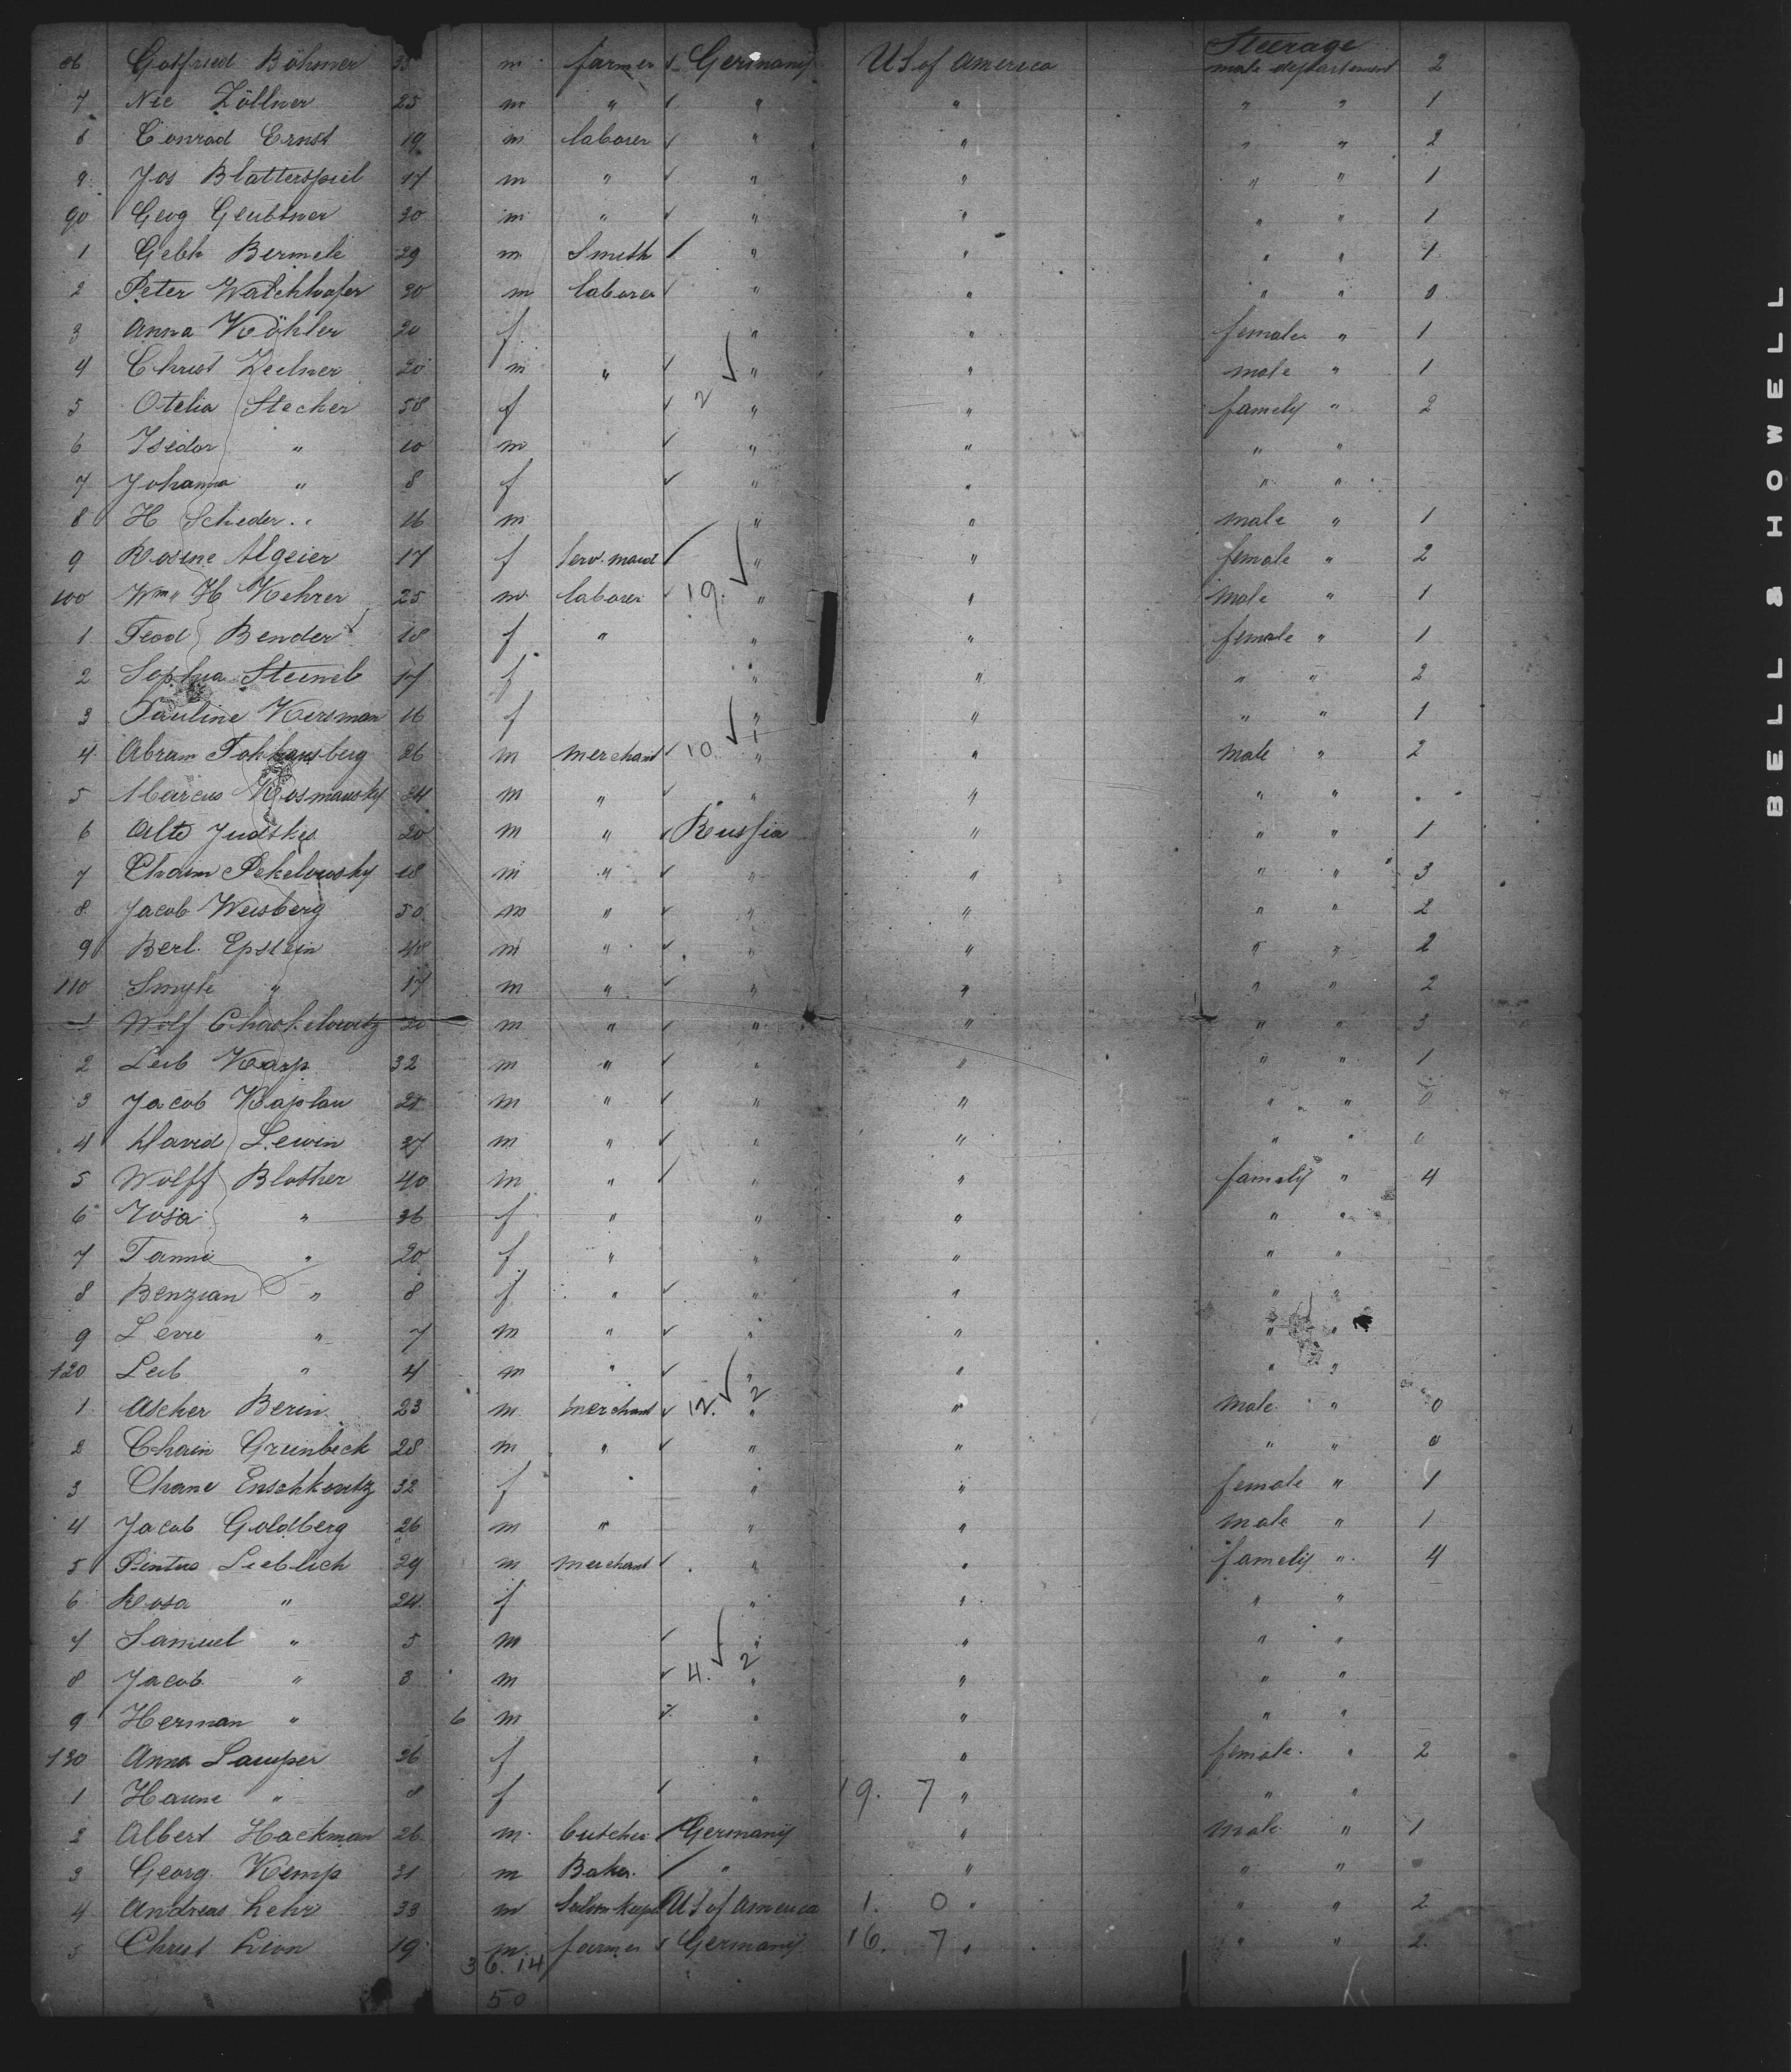 Steerage
86 Gottfried Böhmer 35 m farmer Germany US of America male departement 2
7 Nic Zöllner 25 m " " " " " 1
8 Conrad Ernst 19 m laborer " " " " 2
9 Jos Blatterspiel 17 m " " " " " 1
90 Geog Geubtner 30 m " " " " " 1
1 Gebh Bermele 29 m Smith " " " " 1
2 Peter Walchhofer 20 m laborer " " " " 0
3 Anna Köhler 20 f " " female " 1
4 Christ Zeilner 20 m " " " male " 1
5 Otelia Stecker 58 f 2 " " famely " 2
6 Isidor " 10 m " " " "
7 Johanna " 8 f " " " "
8 H Scheder 16 m " " male " 1
9 Rosine Algeier 17 f Serv. maid " " female " 2
100 Wm H Kehrer 25 m laborer 19. " " male " 1
1 Teod Bender 18 f " " " female " 1
2 Sophia Steineb 17 f " " " " 2
3 Pauline Kersman 16 f " " " " 1
4 Abram 26 m merchant 10. 1 " " male " 2
5 Marcus Kosmansky 24 m " " " " "
6 Alte Judtkes 20 m " Russia " " " 1
7 Chaim Pekelowsky 18 m " " " " " 3
8 Jacob Weisberg 50 m " " " " " 2
9 Berl. Epstein 48 m " " " " " 2
110 Smyle " 17 m " " " " " 2
1 Wolf Chaskelowitz 20 m " " " " " 3
2 Leib Karp 32 m " " " " " 1
3 Jacob Kaplan 21 m " " " " " 0
4 David Lewin 37 m " " " " " 0
5 Wolff Blother 40 m " " " famely " 4
6 Rosa " 36 f " " " " "
7 Fanni " 20 f " " " " "
8 Benzian " 8 f " " " " "
9 Levie " 7 m " " " " "
120 Leib " 4 m " " " " "
1 Ascher Berin 23 m merchant 12. 2 " " male " 0
2 Chaim Grünbeck 28 m " " " " " 0
3 Chane Enschkowitz 32 f " " female " 1
4 Jacob Goldberg 26 m " " " male " 1
5 Pintus Lieblich 29 m merchant " " famely " 4
6 Rosa " 24 f " " " "
7 Samuel " 5 m " " " "
8 Jacob " 3 m 4. 2 " " " "
9 Herman " 6 m " " " "
130 Anna Lamper 26 f " " female " 2
1 Hanne " 8 f " 19. 7 " " "
2 Albert Hackman 26 m butcher Germany " male " 1
3 Georg Kemp 31 m Baker " " " "
4 Andreas Lehr 33 m Saloon keeper US of America 1. 0 " " " 2
5 Christ Lion 19 m farmer Germany 16. 7 " " " 2
36. 14
50
BELL & HOWELL